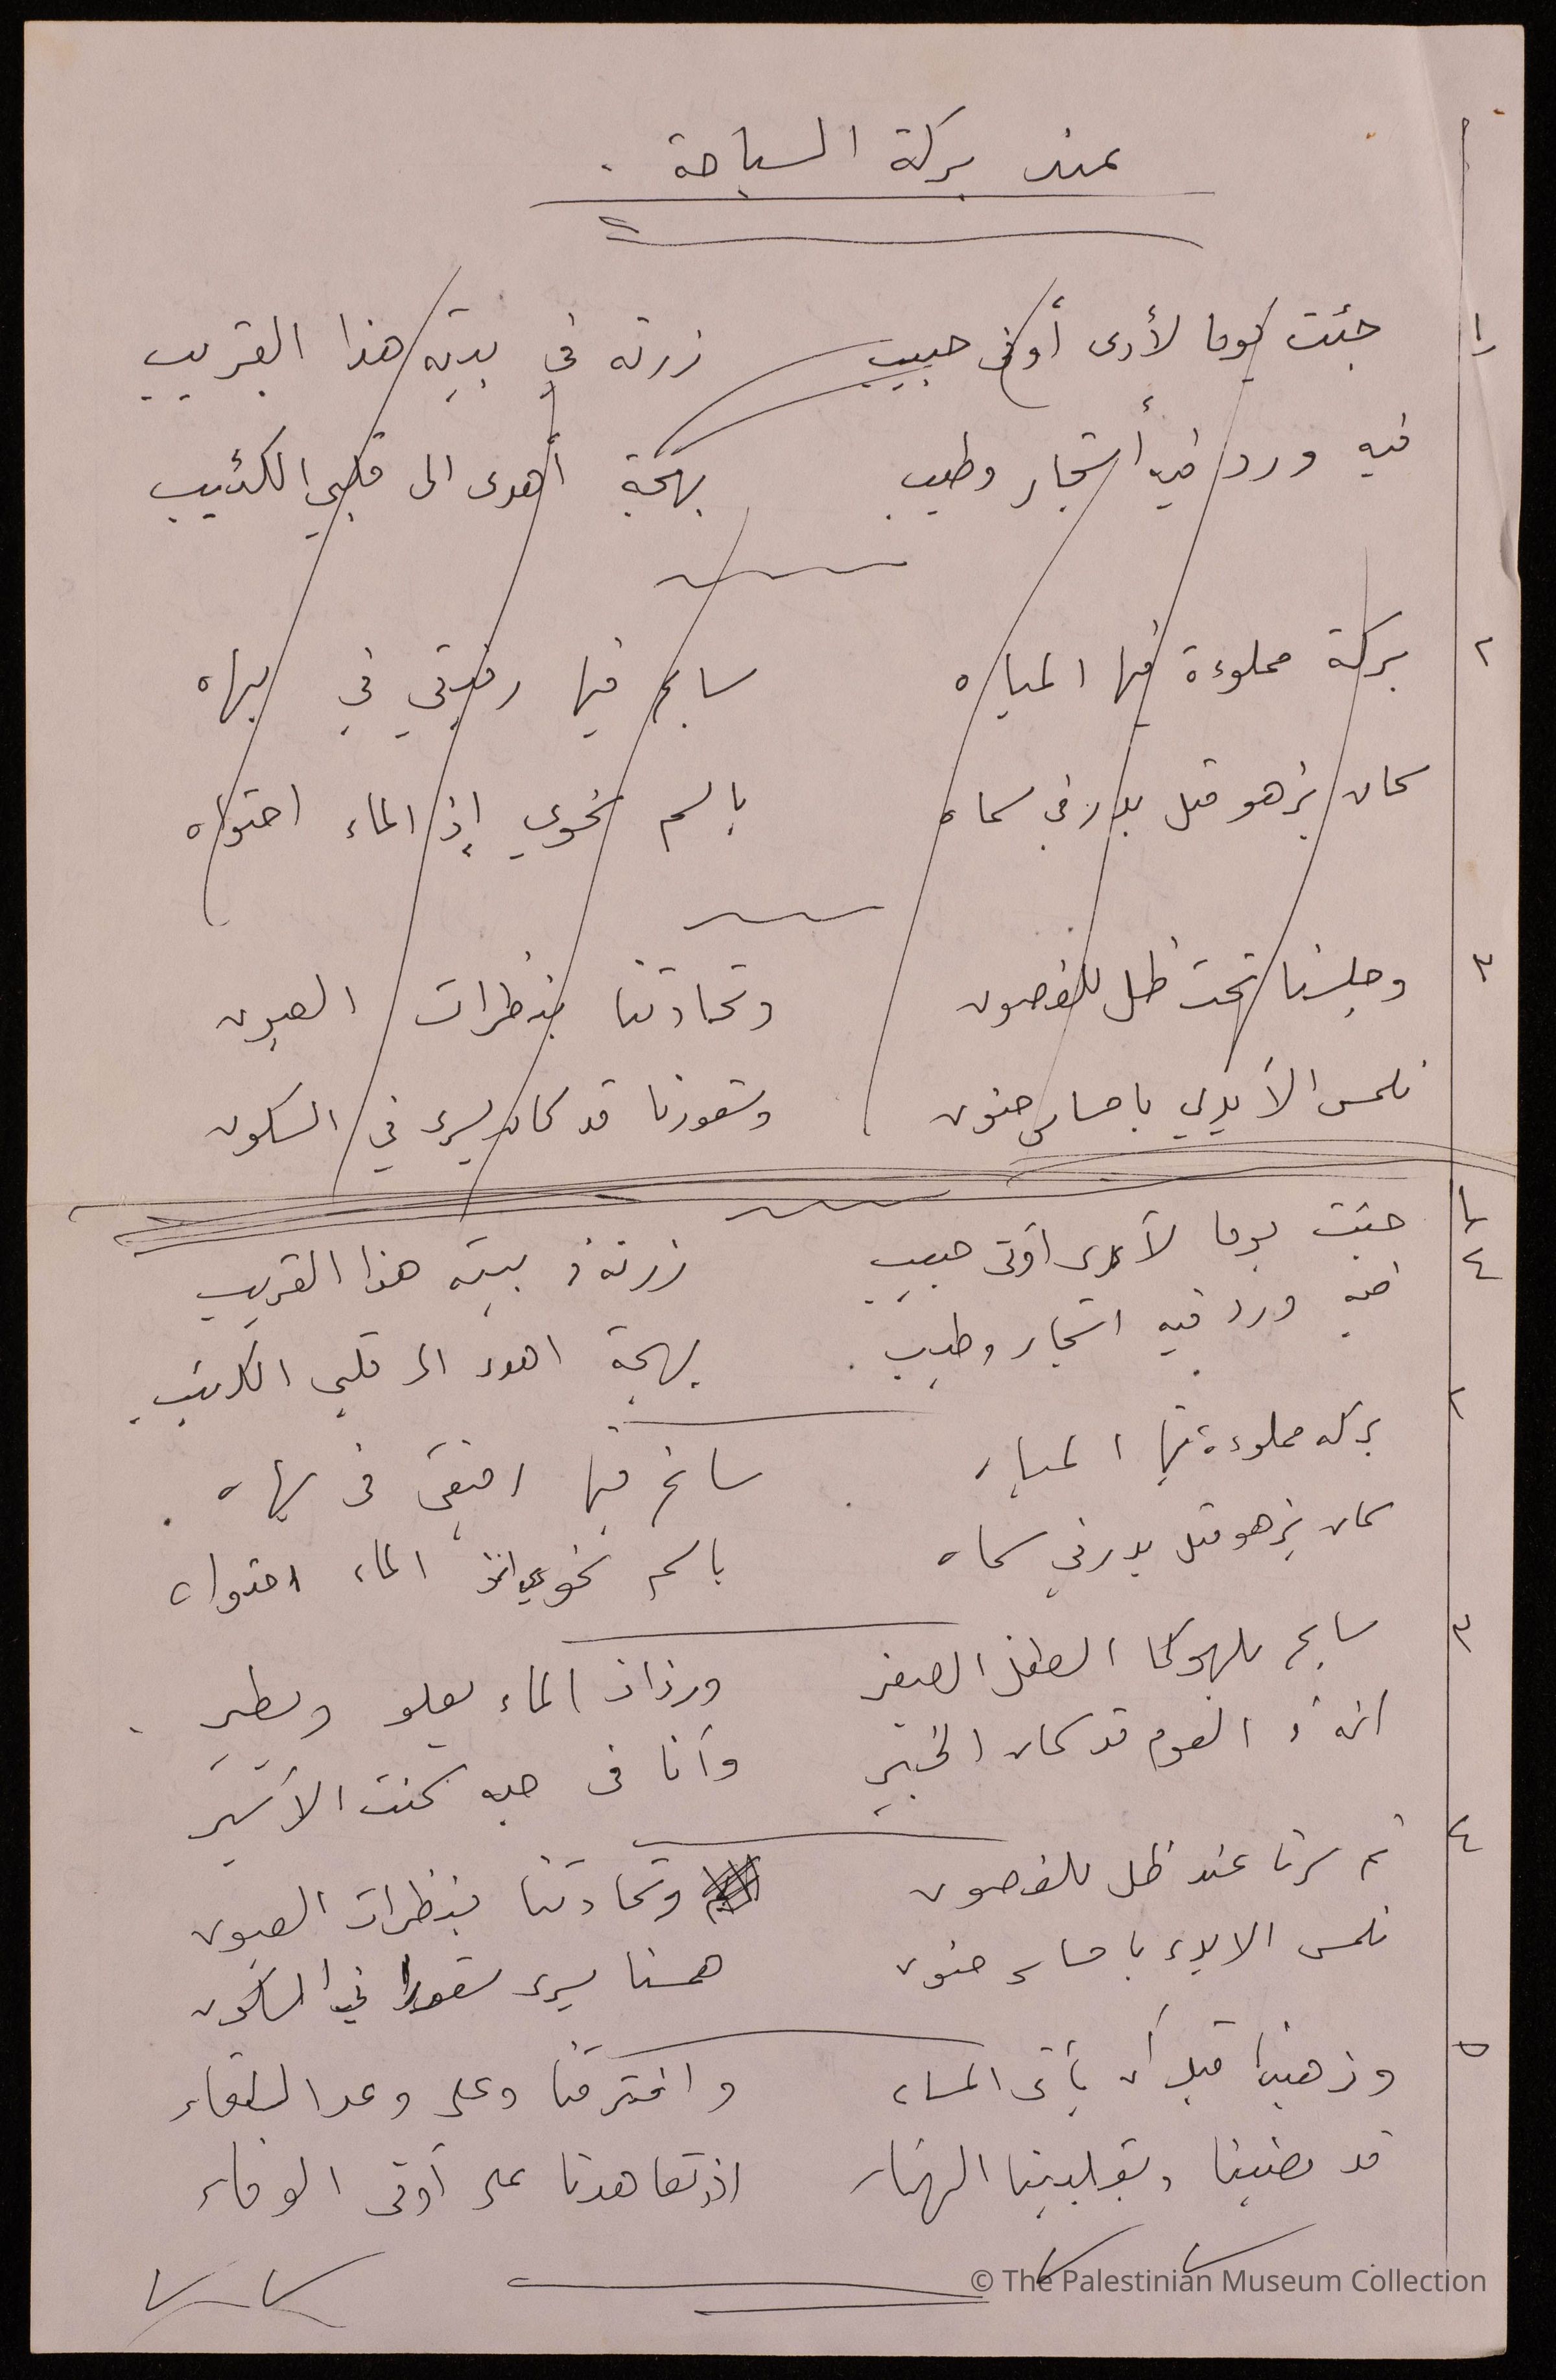 عند بركة السباحة .
١ جئت يوما لأرى أوفى حبيب زرته في بيته هذا القريب
فيه ورد فيه أشجار وطيب بهجة أهدى الى قلبي الكئيب
٢ بركة مملوءة فيها المياه سابح فيها رفيقي في بهاه
كان يزهو مثل بدر في سماه باسم نحوي إذ الماء احتواه
٣ وجلسنا تحت ظل للغصون وتحادثنا بنظرات العيون
نلمس الأيدي باحساس حنون وشعورنا قد كان يسرى في السكون
١ جئت يوما لأرى أوفى حبيب زرته في بيته هذا القريب
٤ فيه ورد فيه اشجار وطيب . بهجة اهدى الى قلبي الكئيب .
٢ بركه مملوءة فيها المياه سابح فيها رفيقي في بهاه .
كان يزهو مثل بدر في سماه باسم نحوي اذ الماء احتواه
٣ سابح يلهو كما الطفل الصغير ورذاذ الماء يعلو ويطير .
انه في العوم قد كان الخبير وأنا في حبه كنت الأسير
٤ ثم سرنا عند ظل للغصون وتحادثنا بنظرات العيون
نلمس الايدي باحساس حنون همسنا يسرى في السكون
٥ وذهبنا قبل أن يأتى المساء وافترقنا وعلى وعد اللقاء
قد مضينا وبقلبينا اذ تعاهدنا على أوفى الوفاء
© The Palestinian Museum Collection